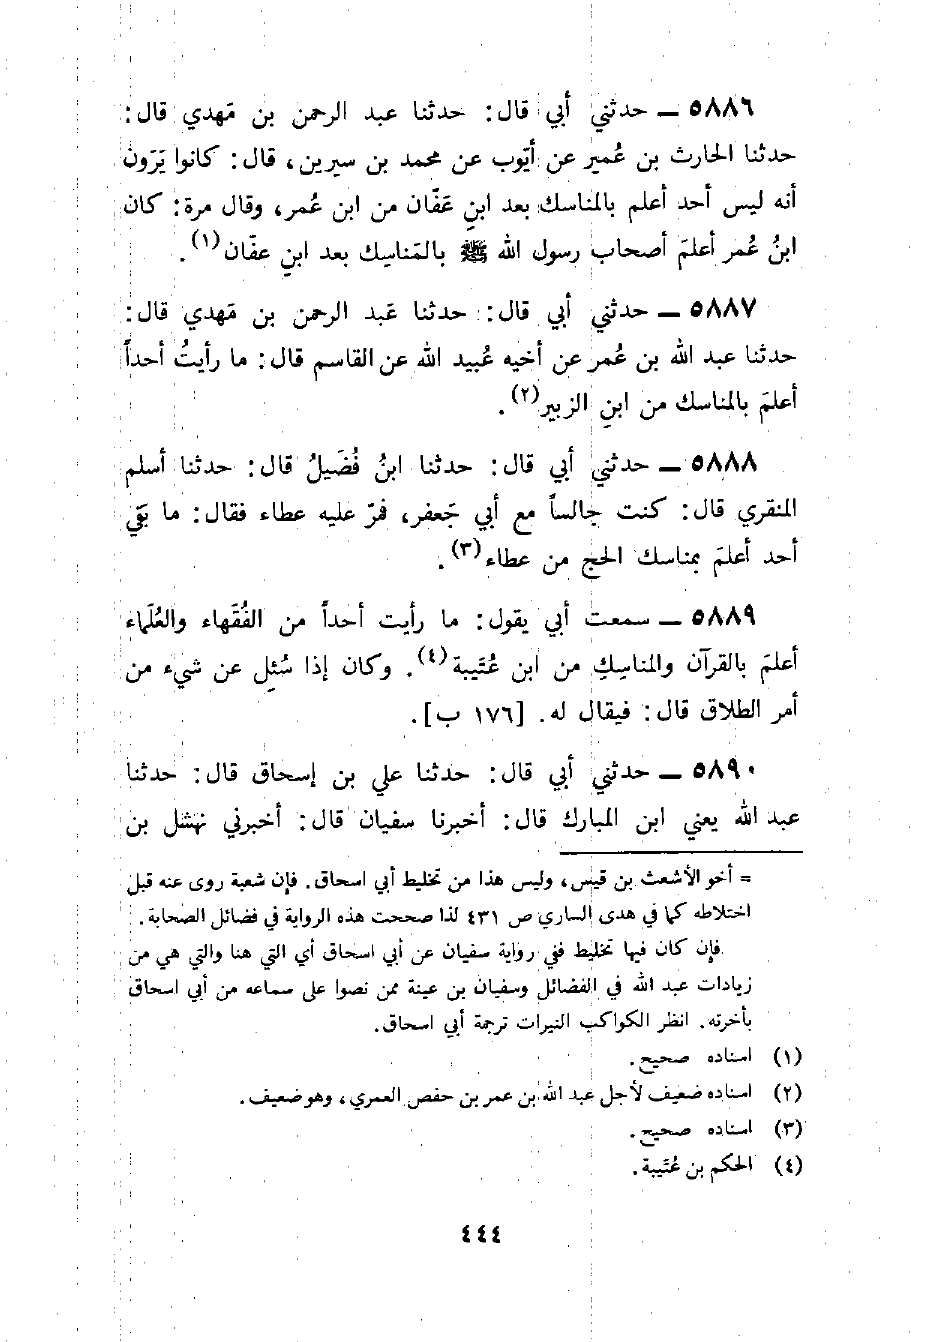 ٥٨٨٦ ــ حدثني أبي قال: حدثنا عبد الرحمن بن مَهدي قال:
حدثنا الحارث بن عُمير عن أيّوب عن محمد بن سيرين، قال: كانوا يَرَون
أنه ليس أحد أعلم بالمناسك بعد ابنِ عَفّان من ابن عُمر، وقال مرة: كان
ابنُ عُمر أعلمَ أصحاب رسول الله ﷺ بالمَناسِك بعد ابنِ عفّان(١).
٥٨٨٧ ــ حدثني أبي قال: حدثنا عَبد الرحمن بن مَهدي قال:
حدثنا عبد الله بن عُمر عن أخيه عُبيد الله عن القاسم قال: ما رأيتُ أحداً
أعلمَ بالمناسك من ابنِ الزبير(٢).
٥٨٨٨ ــ حدثني أبي قال: حدثنا ابنُ فُضَيلُ قال: حدثنا أسلم
المنقري قال: كنت جالساً مع أبي جَعفر، فمرّ عليه عطاء فقال: ما بَقي
أحد أعلمَ بمناسك الحج من عطاء(٣).
٥٨٨٩ ــ سمعت أبي يقول: ما رأيت أحداً من الفُقَهاء والعُلَماء
أعلمَ بالقرآن والمناسِكِ من ابن عُتَيبة(٤). وكان إذا سُئلِ عن شيء من
أمر الطلاق قال: فيقال له. [١٧٦ ب].
٥٨٩٠ ــ حدثني أبي قال: حدثنا علي بن إسحاق قال: حدثنا
عبد الله يعني ابن المبارك قال: أخبرنا سفيان قال: أخبرني نهشل بن
= أخو الأشعث بن قيس، وليس هذا من تخليط أبي اسحاق. فإن شعبة روى عنه قبل
اختلاطه كما في هدى الساري ص ٤٣١ لذا صححت هذه الرواية في فضائل الصحابة.
فإن كان فيها تخليط ففي رواية سفيان عن أبي اسحاق أي التي هنا والتي هي من
زيادات عبد الله في الفضائل وسفيان بن عينة ممن نصوا على سماعه من أبي اسحاق
بأخرته. انظر الكواكب النيرات ترجمة أبي اسحاق.
(١) اسناده صحيح.
(٢) اسناده ضعيف لأجل عبد الله بن عمر بن حفص العمري، وهو ضعيف.
(٣) اسناده صحيح.
(٤) الحكم بن عُتَيبة.
٤٤٤